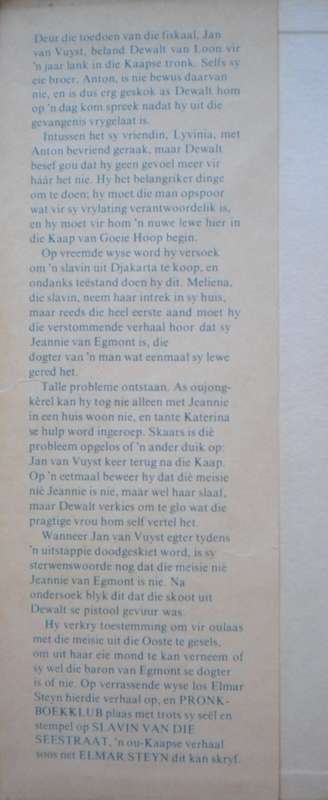 Deur die toedoen van die fiskaal, Jan
van Vuyst, beland Dewalt van Loon vir
'n jaar lank in die Kaapse tronk. Selfs sy
eie broer, Anton, is nie bewus daarvan
nie, en is dus erg geskok as Dewalt hom
op 'n dag kom spreek nadat hy uit die
gevangenis vrygelaat is.
Intussen het sy vriendin, Lyvinia, met
Anton bevriend geraak, maar Dewalt
besef gou dat hy geen gevoel meer vir
háár het nie. Hy het belangriker dinge
om te doen; hy moet die man opspoor
wat vir sy vrylating verantwoordelik is,
en hy moet vir hom 'n nuwe lewe hier in
die Kaap van Goeie Hoop begin.
Op vreemde wyse word hy versoek
om 'n slavin uit Djakarta te koop, en
ondanks teëstand doen hy dit. Meliena,
die slavin, neem haar intrek in sy huis,
maar reeds die heel eerste aand moet hy
die verstommende verhaal hoor dat sy
Jeannie van Egmont is, die
dogter van 'n man wat eenmaal sy lewe
gered het.
Talle probleme ontstaan. As oujong-
kêrel kan hy tog nie alleen met Jeannie
in een huis woon nie, en tante Katerina
se hulp word ingeroep. Skaars is dié
probleem opgelos of 'n ander duik op:
Jan van Vuyst keer terug na die Kaap.
Op 'n eetmaal beweer hy dat dié meisie
nié Jeannie is nie, maar wel haar slaaf,
maar Dewalt verkies om te glo wat die
pragtige vrou hom self vertel het.
Wanneer Jan van Vuyst egter tydens
'n uitstappie doodgeskiet word, is sy
sterwenswoorde nog dat die meisie nié
Jeannie van Egmont is nie. Na
ondersoek blyk dit dat die skoot uit
Dewalt se pistool gevuur was.
Hy verkry toestemming om vir oulaas
met die meisie uit die Ooste te gesels,
om uit haar eie mond te kan verneem of
sy wel die baron van Egmont se dogter
is of nie. Op verrassende wyse los Elmar
Steyn hierdie verhaal op, en PRONK-
BOEKKLUB plaas met trots sy seël en
stempel op SLAVIN VAN DIE
SEESTRAAT, 'n ou-Kaapse verhaal
soos net ELMAR STEYN dit kan skryf.